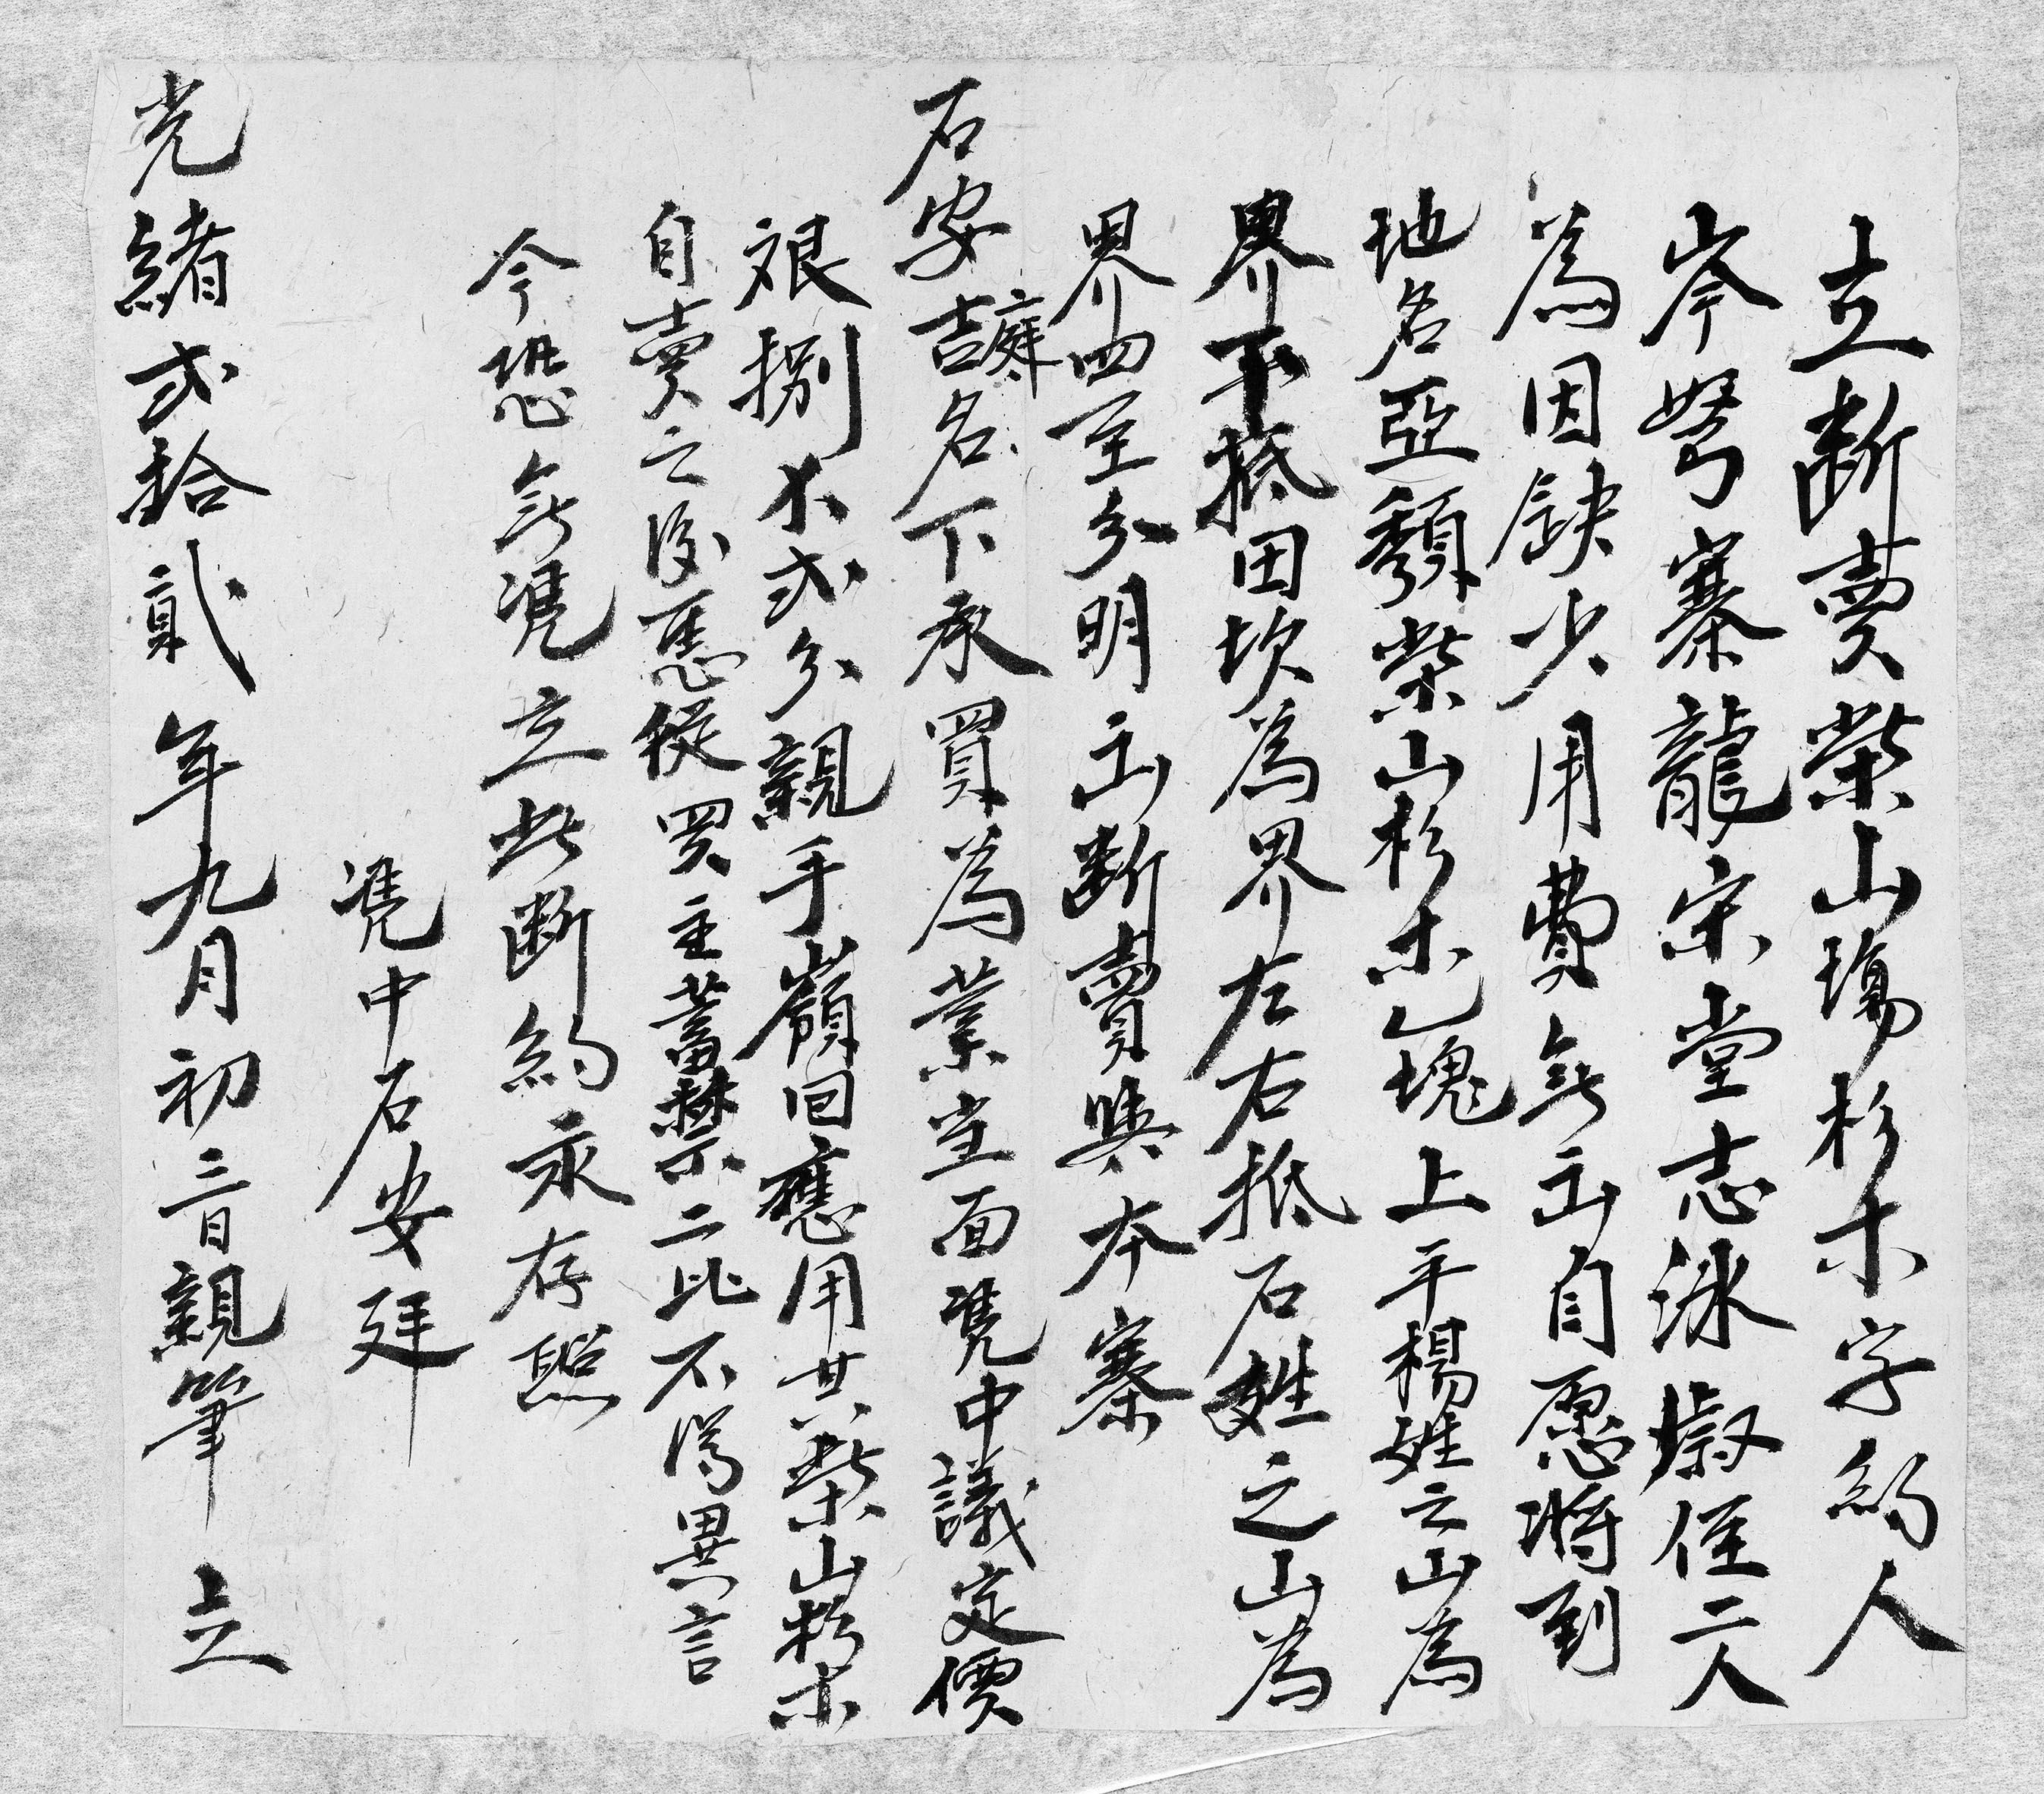 立断賣柴山塲杉木字約人
岑努寨龍宗堂志泳叔侄二人
為因缺少用費無出自愿將到
地名亞類柴山杉木乙塊上平楊姓之山為
界下抵田坎為界左右抵石姓之山為
界四至分明出断賣與本寨
石安吉名下承買為業当面凭中議定價
艮捌不式分親手領回應用其柴山杉木
自賣之後憑從買主蓄禁二比不得異言
今恐無凴立此断約永存照
凴中石安廷
光緒式拾貳年九月初三日親筆立